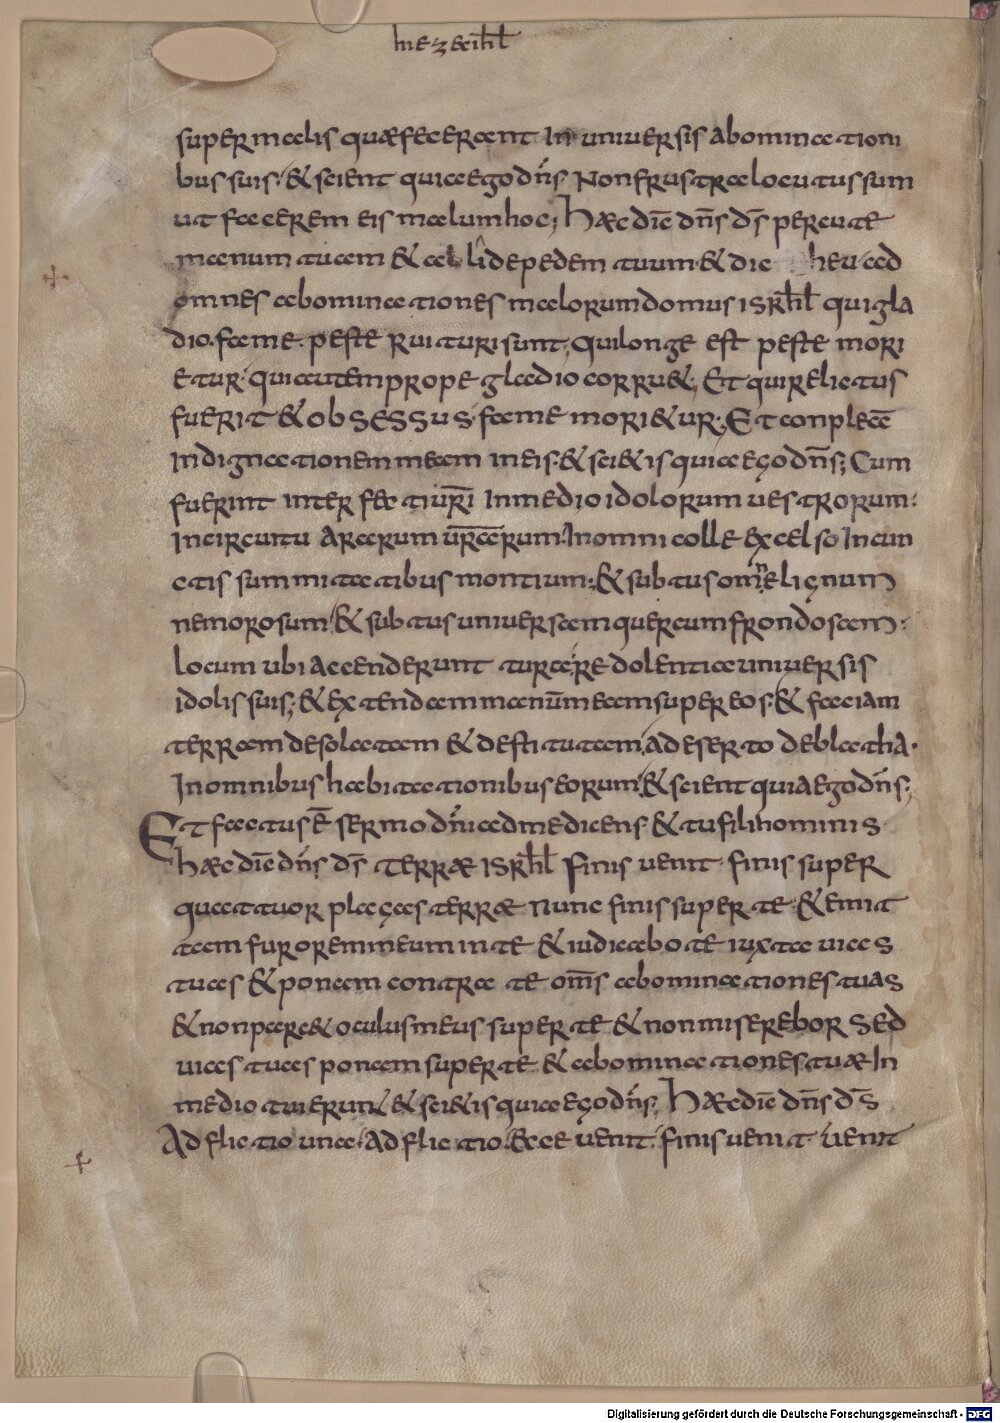 hiezecihl
super malis quæ fecerant In universis abomination
bus suis· & scient quia ego dn̄s· Non frustra locutus sum
ut facerem eis malum hoc; Hæc dic̄ dn̄s d̄s percute
manum tuam & allide pedem tuum· & dic heu ad
omnes abominationes malorum domus isrhl̄ qui gla
dio· fame· peste ruituri sunt; qui longe est peste mori
etur· qui autem prope gladio corru&; Et qui relictus
fuerit & obsessus· fame mori&ur; Et conpleb̄
indignationem meam in eis· & sci&is quia ego dn̄s; Cum
fuerint interfecti ur̄i In medio idolorum uestrorum·
In circuitu ararum ur̄arum· In omni colle excelso In cun
ctis summitatibus montium· & subtus om̄ne lignum
nemorosum· & subtus uniuersam quercum frondosam·
locum ubi accenderunt tura redolentia uniuersis
idolis suis; & extendam manum̄ meam super eos· & faciam
terram desolatam & destitutam· a deserto deblatha·
In omnibus habitationibus eorum· & scient quia ego dn̄s;
Et factus ē sermo dn̄i ad me dicens· & tu fili hominis
hæc dic̄ dn̄s d̄s terræ isrhl̄ Finis uenit· finis super
quattuor plagas terræ Nunc finis super te· & emit
tam furorem meum in te & iudicabo te iuxta uias
tuas & ponam contra te om̄s abominationes tuas
& non parc& oculus meus super te & non miserebor Sed
uias tuas ponam super te & abominationes tuæ In
medio tui erunt & sci&is quia ego dn̄s; Hæc dic̄ dn̄s d̄s
Adflictio una· Adflictio· Ecce uenit· finis uenit· uenit
Digitalisierung gefördert durch die Deutsche Forschungsgemeinschaft - DFG